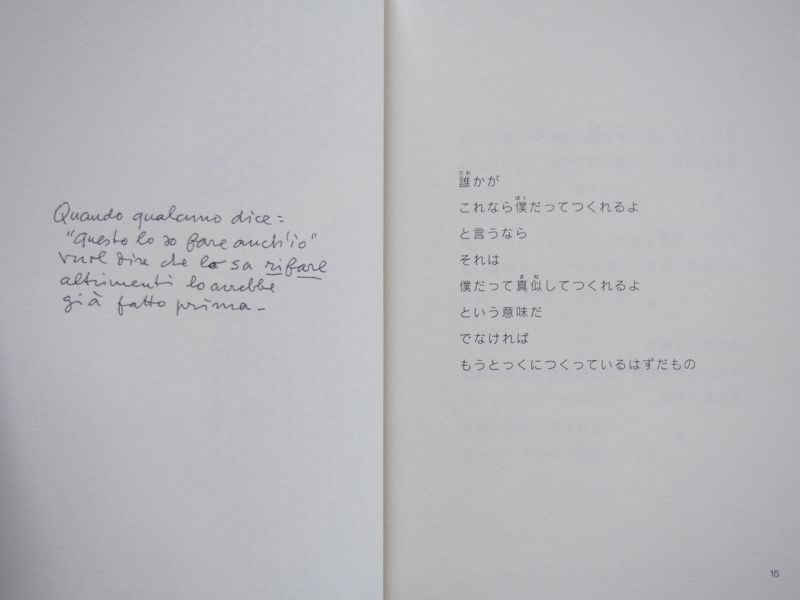 Quando qualcuno dice:
"questo lo so fare anch'io"
vuol dire che lo sa rifare
altrimenti lo avrebbe
già fatto prima—
誰かが
これなら僕だってつくれるよ
と言うなら
それは
僕だって真似してつくれるよ
という意味だ
でなければ
もうとっくにつくっているはずだもの
15